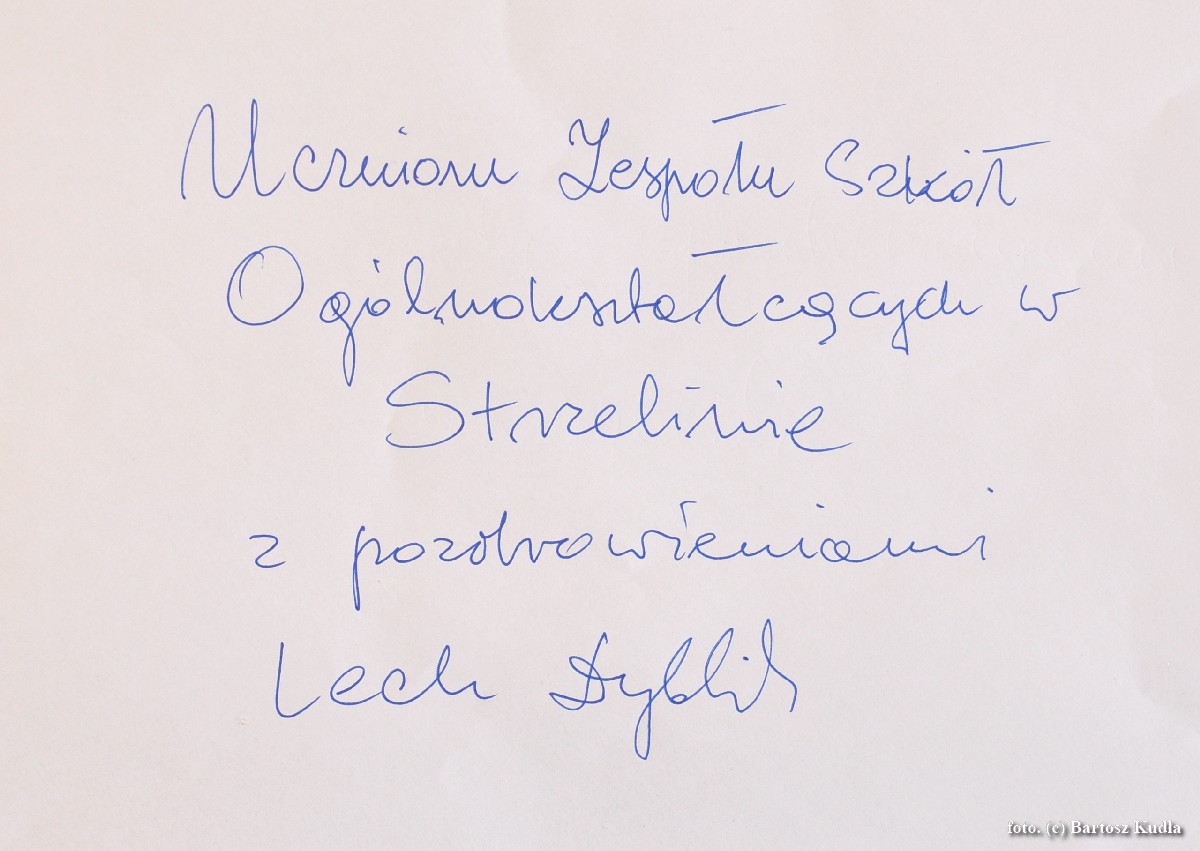 Uczniom Zespołu Szkół
Ogólnokształcących w
Strzelinie
z pozdrowieniami
Lech Dyblik
foto. (c) Bartosz Kudła